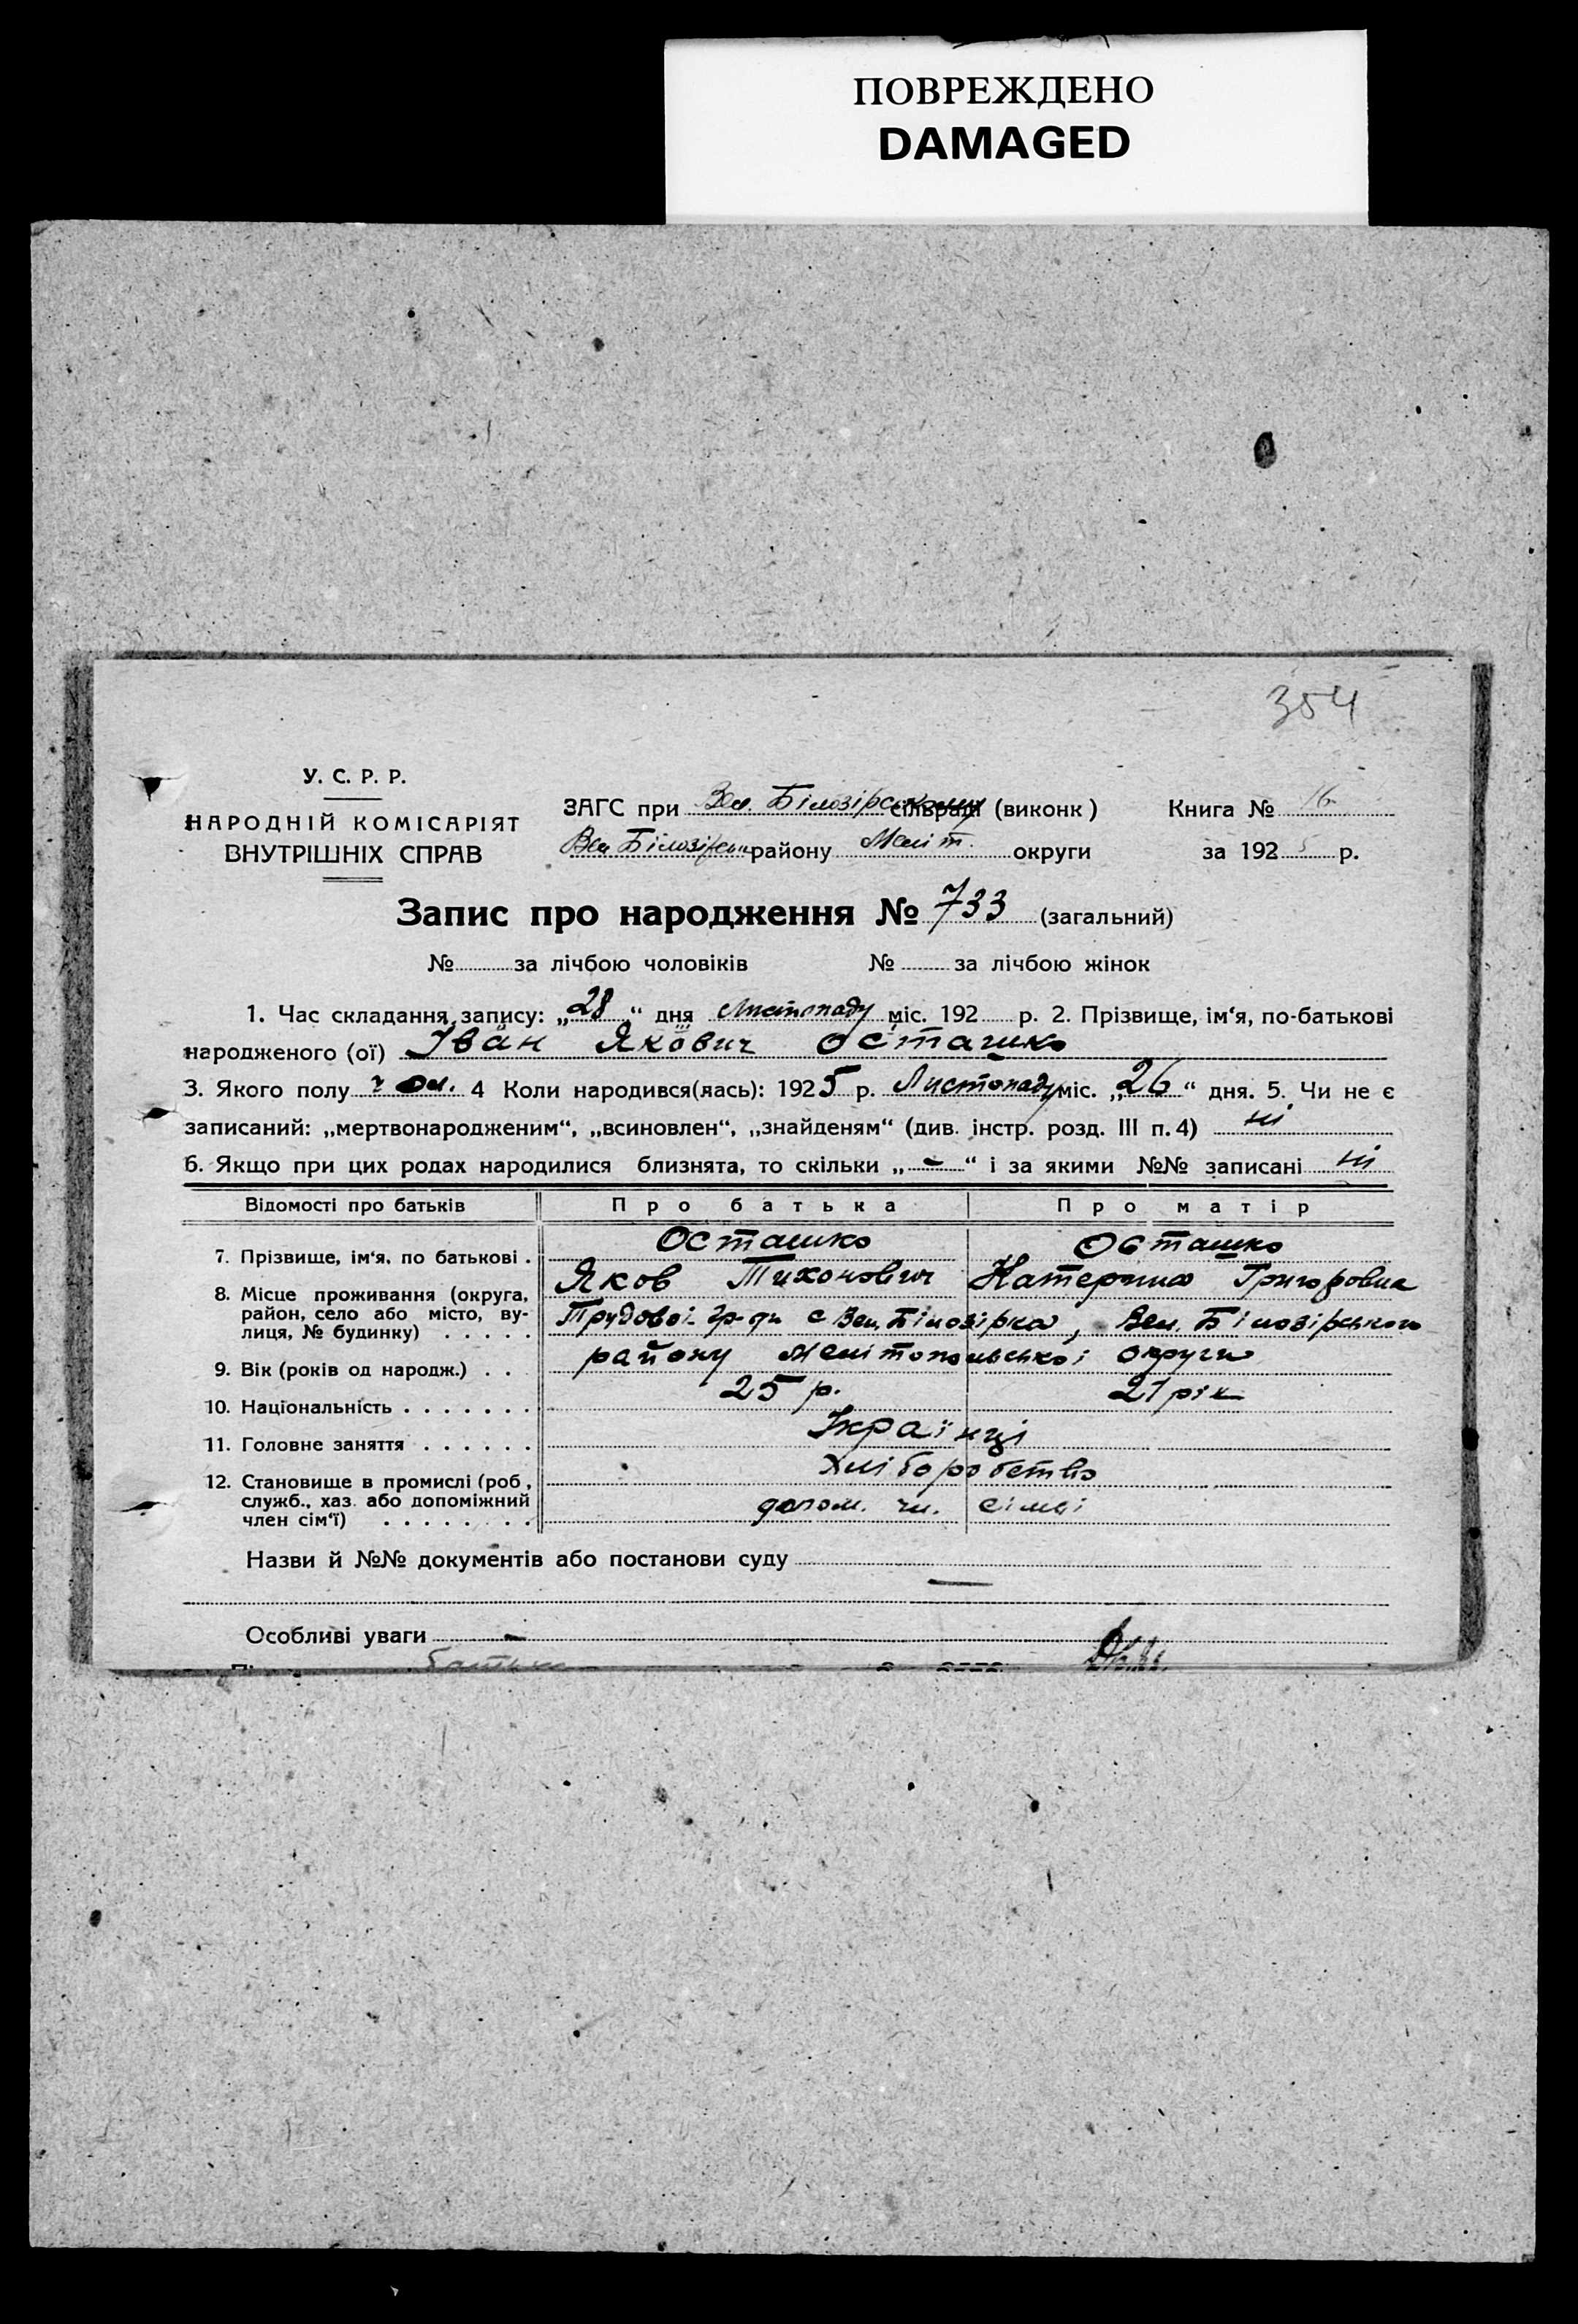 ПОВРЕЖДЕНО
DAMAGED
354
У. С. Р. Р.
НАРОДНІЙ КОМІСАРІЯТ
ВНУТРІШНІХ СПРАВ
ЗАГС при Вел. Білозірському сільраді (виконк)
Книга № 16
Вел. Білозірськ району Меліт. округи
за 1925 р.
Запис про народження № 733 (загальний)
№ за лічбою чоловіків № за лічбою жінок
1. Час складання запису: „28“ дня Листопаду міс. 192 р. 2. Прізвище, ім‘я, по-батькові
народженого (ої) Іван Якович Осташко
3. Якого полу чол. 4 Коли народився(лась): 1925 р. Листопаду міс. „26“ дня. 5. Чи не є
записаний: „мертвонародженим“, „всиновлен“, „знайденям“ (див. інстр. розд. III п. 4) ні
6. Якщо при цих родах народилися близнята, то скільки „-“ і за якими №№ записані ні
Відомості про батьків Про батька Про матір
7. Прізвище, ім‘я, по батькові . Осташко Осташко
Яков Тихонович Катерина Григоровна
8. Місце проживання (округа,
район, село або місто, ву-
лиця, № будинку) . . . . .
Трудової гр-ди с Вел. Білозірка, Вел. Білозірського
району Мелітопольської округи
9. Вік (років од народж.) . . 25 р. 21 рік
10. Національність . . . . . . . Українці
11. Головне заняття . . . . . . Хліборобство
12. Становище в промислі (роб.,
служб., хаз. або допоміжний
член сім‘ї) . . . . . . . .
допом. чл. сімьі
Назви й №№ документів або постанови суду —
Особливі уваги -
батько